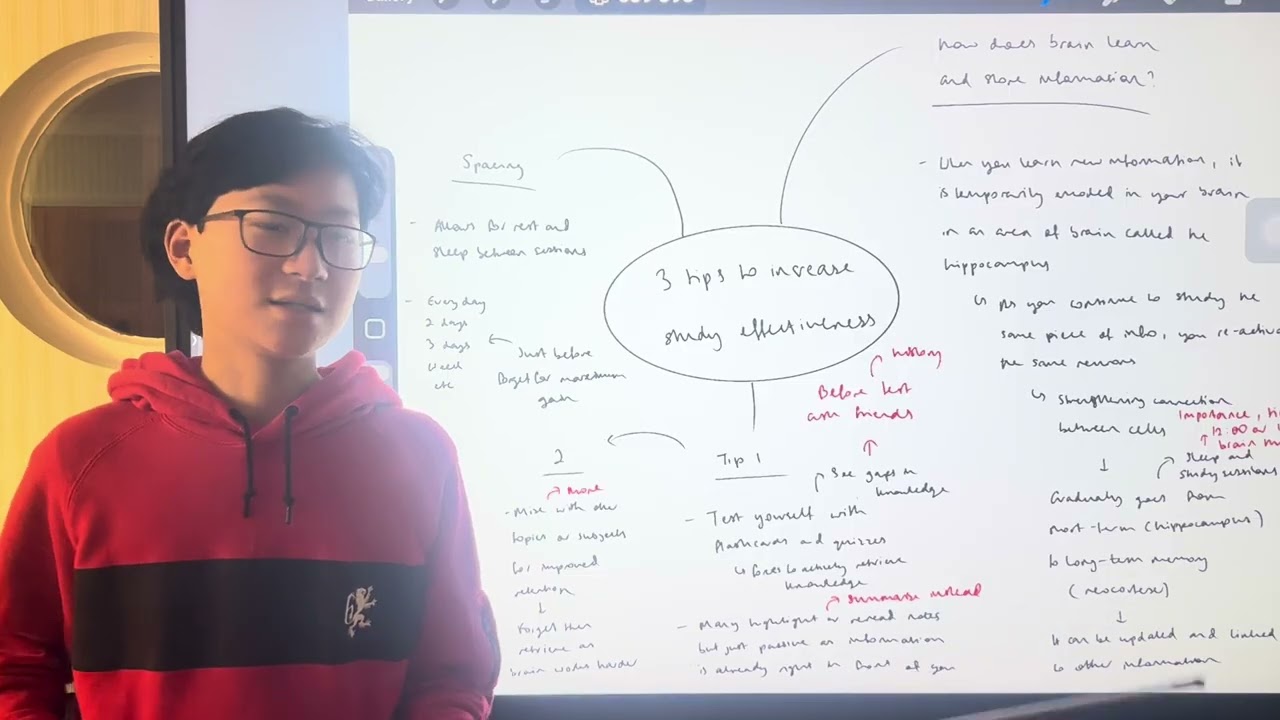 How does brain learn
and store information?
- When you learn new information, it
is temporarily encoded in your brain
in an area of brain called the
hippocampus
↳ As you continue to study the
same piece of info, you re-activa
the same neurons
↳ Strengthening connection
between cells
Importance,
12:00 or
brain
sleep and
study sessions
Gradually goes from
short-term (hippocampus)
to long-term memory
(neocortex)
↓
It can be updated and linked
to other information
3 tips to increase
study effectiveness
Tip 1
- Test yourself with
flashcards and quizzes
↳ Forces to actively retrieve
knowledge
See gaps in
knowledge
Before test
ask friends
history
- Many highlight or reread notes
but just passive as information
is already right in front of you
summarise instead
2
more
- Mix with other
topics or subjects
for improved
retention
↓
Forget then
retrieve as
brain works harder
Spacing
- Allows for rest and
sleep between sessions
- Every day
2 days
3 days
week
etc
Just before
forget for maximum
gain